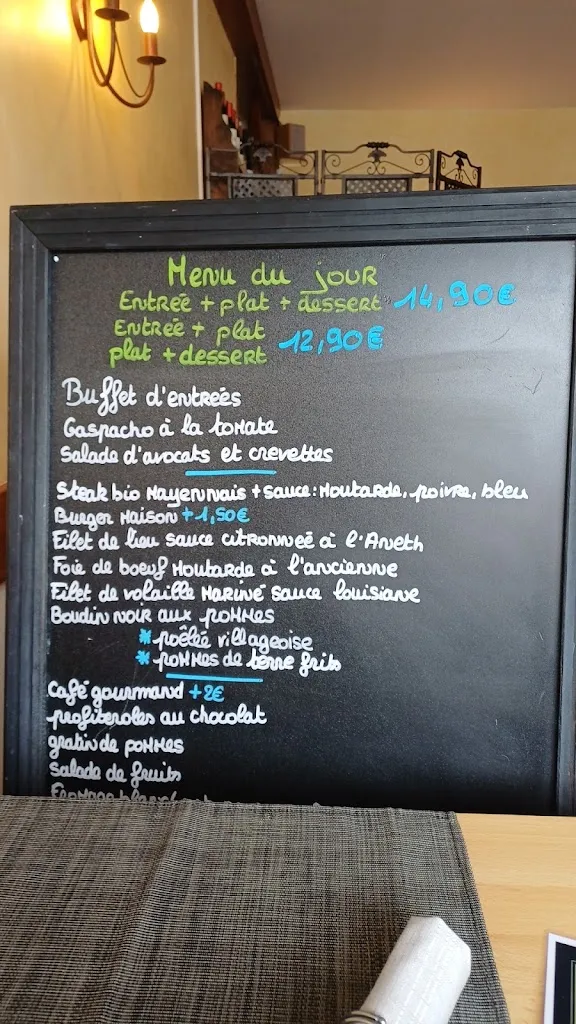 Menu du jour
Entrée + plat + dessert 14,90€
Entrée + plat
12,90€
plat + dessert
Buffet d'entreés
Gaspacho à la tomate
Salade d'avocats et crevettes
Steak bio Mayennais + sauce: Moutarde, poivre, bleu
Burger Maison +1,50€
Filet de lieu sauce citronneé à l'Aneth
Foie de boeuf Moutarde à l'ancienne
Filet de volaille Mariné sauce louisiane
Boudin noir aux pommes
* poêleé villageoise
* pommes de terre frits
Café gourmand +2€
profiteroles au chocolat
gratin de pommes
Salade de fruits
Fromage